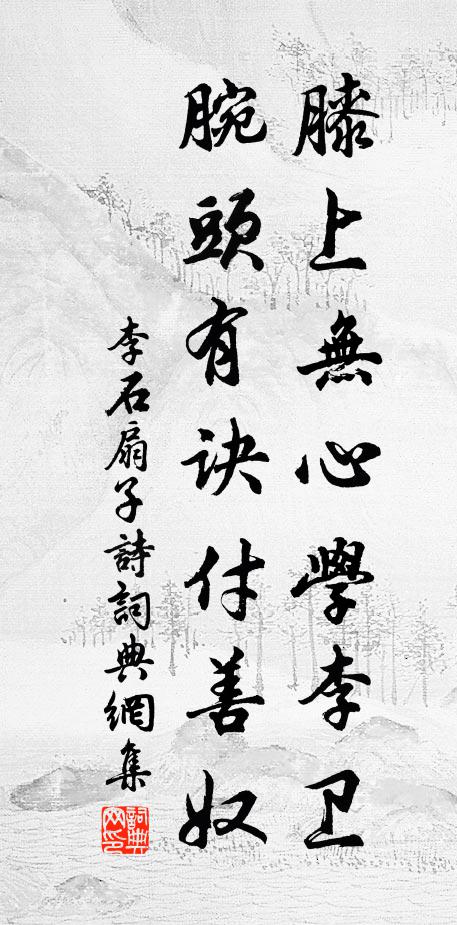 膝上無心學李卫
腕頭有訣付善奴
李石扇子詩詞典網集
詞典网印